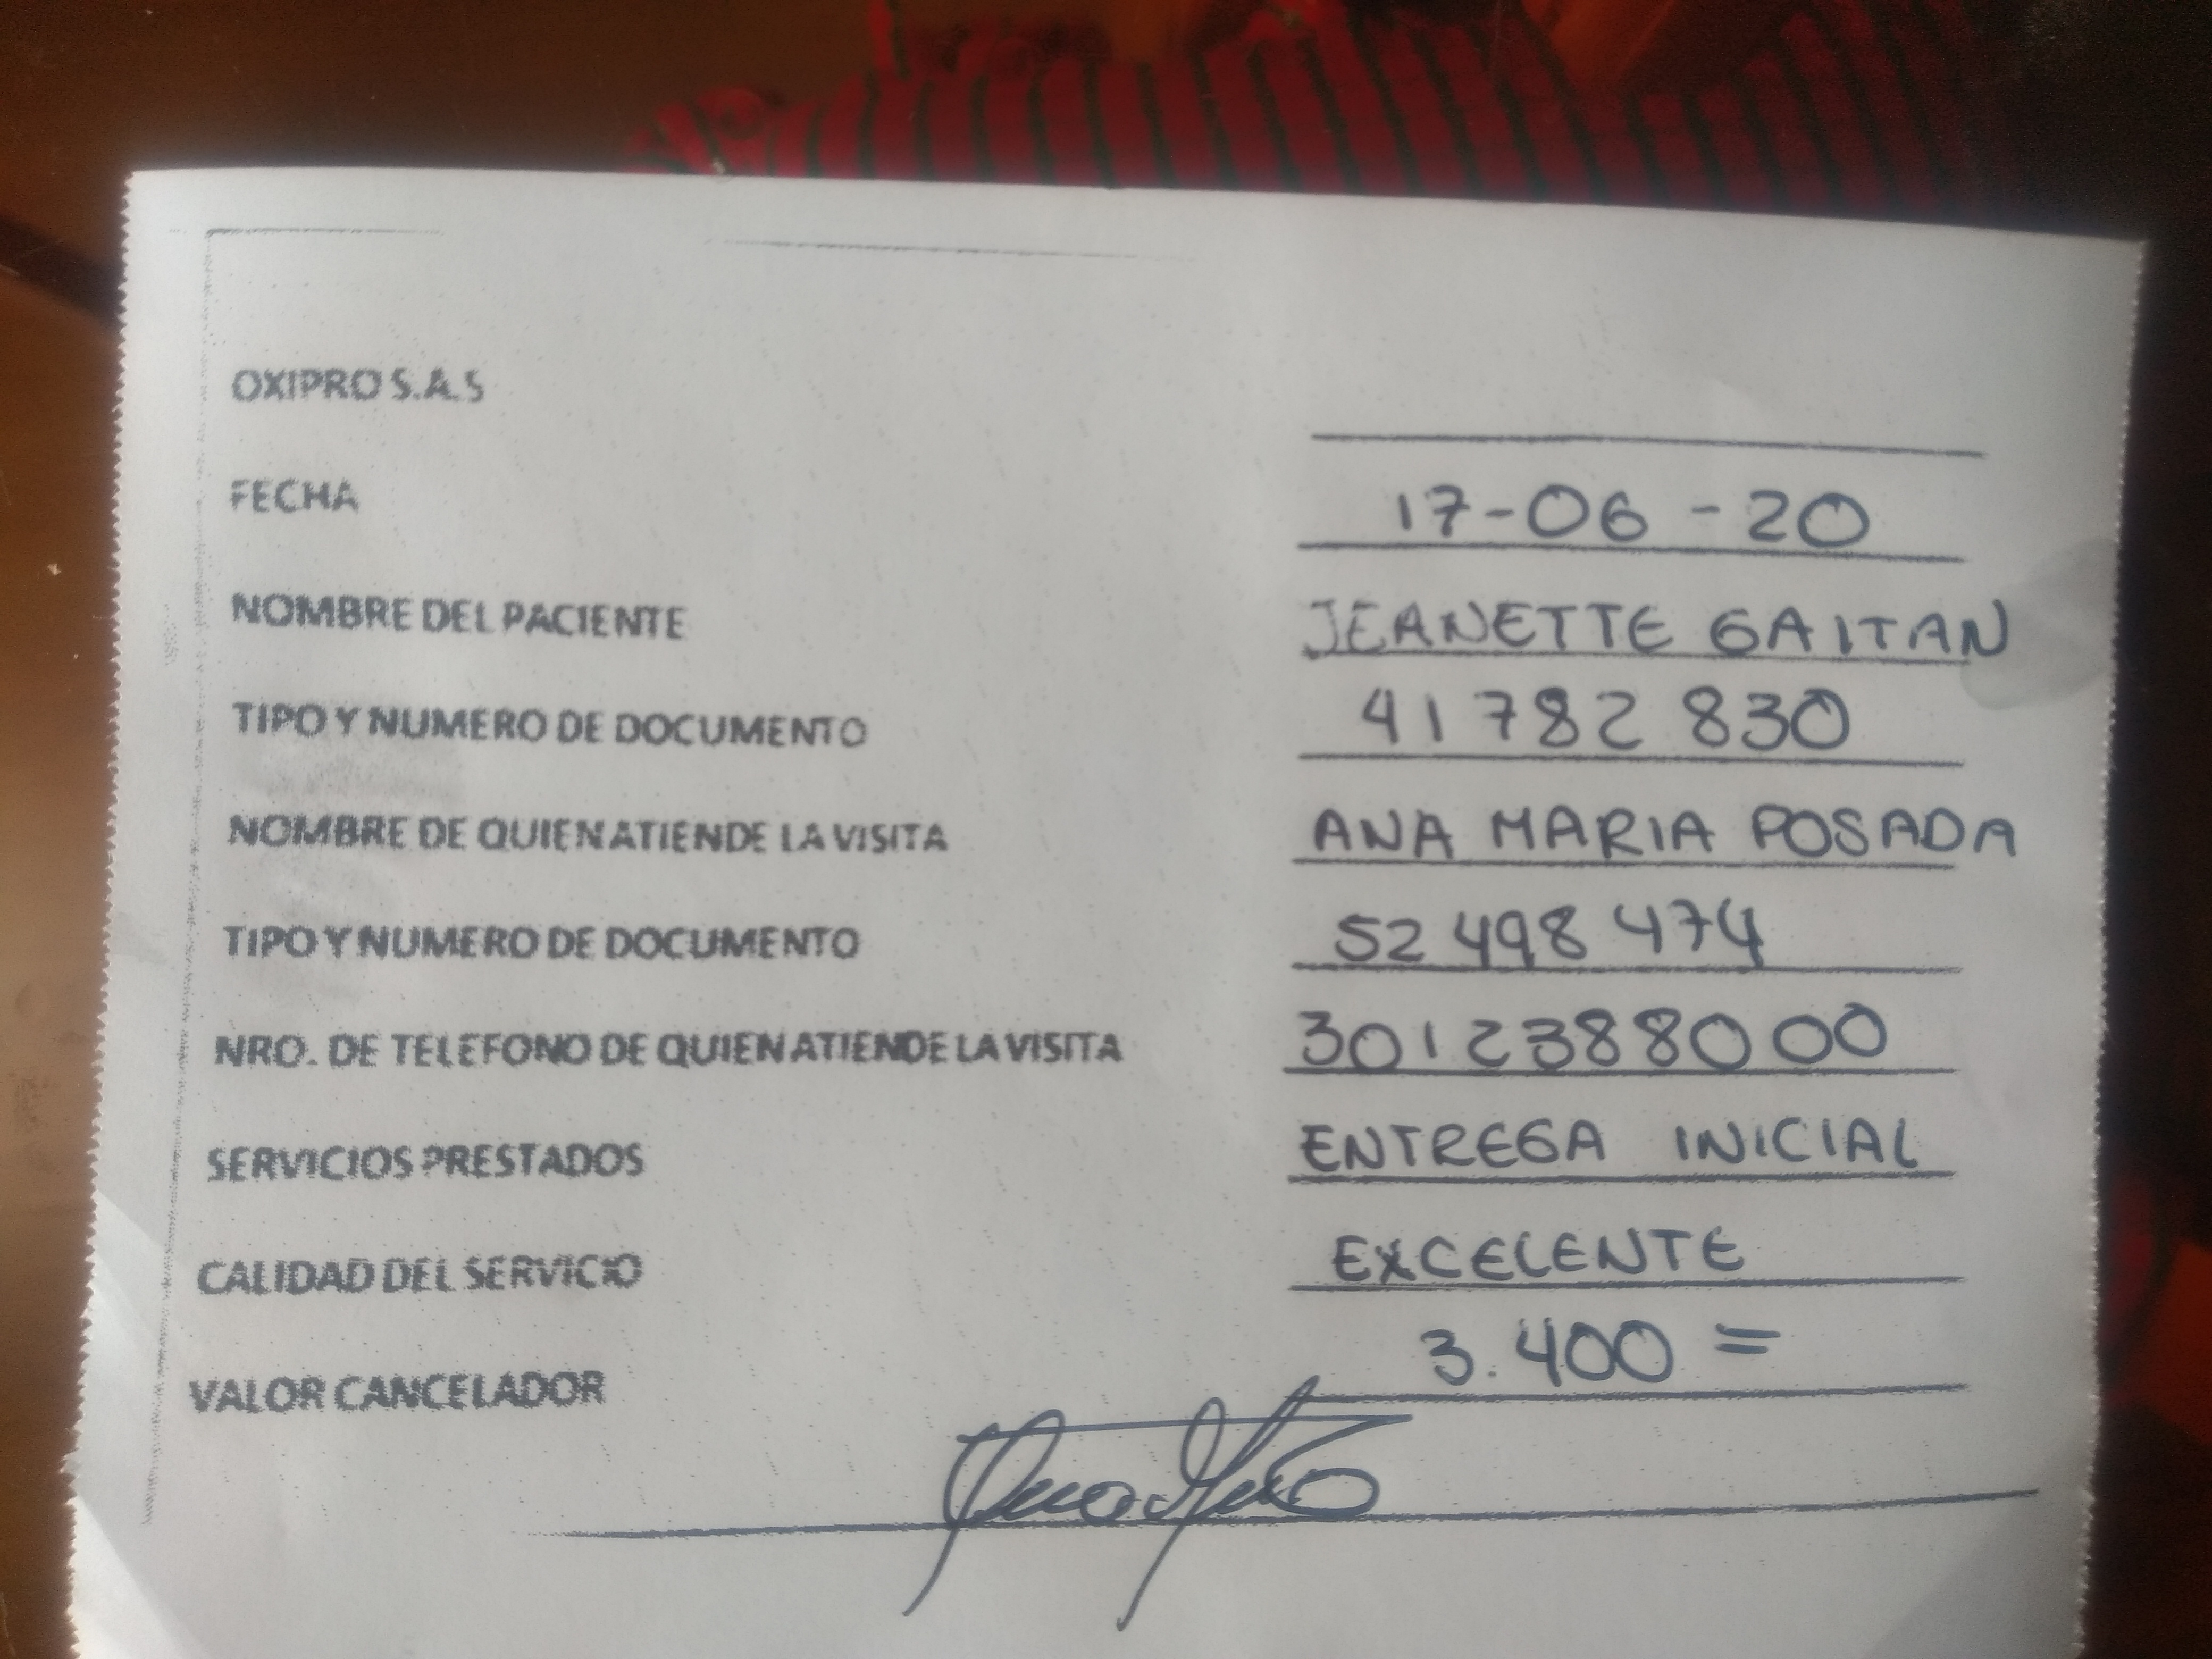 OXIPRO S.A.S
FECHA 17-06-20
NOMBRE DEL PACIENTE JEANETTE GAITAN
TIPO Y NUMERO DE DOCUMENTO 41782830
NOMBRE DE QUIEN ATIENDE LA VISITA ANA MARIA POSADA
TIPO Y NUMERO DE DOCUMENTO 52498474
NRO. DE TELEFONO DE QUIEN ATIENDE LA VISITA 3012388000
SERVICIOS PRESTADOS ENTREGA INICIAL
CALIDAD DEL SERVICIO EXCELENTE
VALOR CANCELADOR 3.400 =